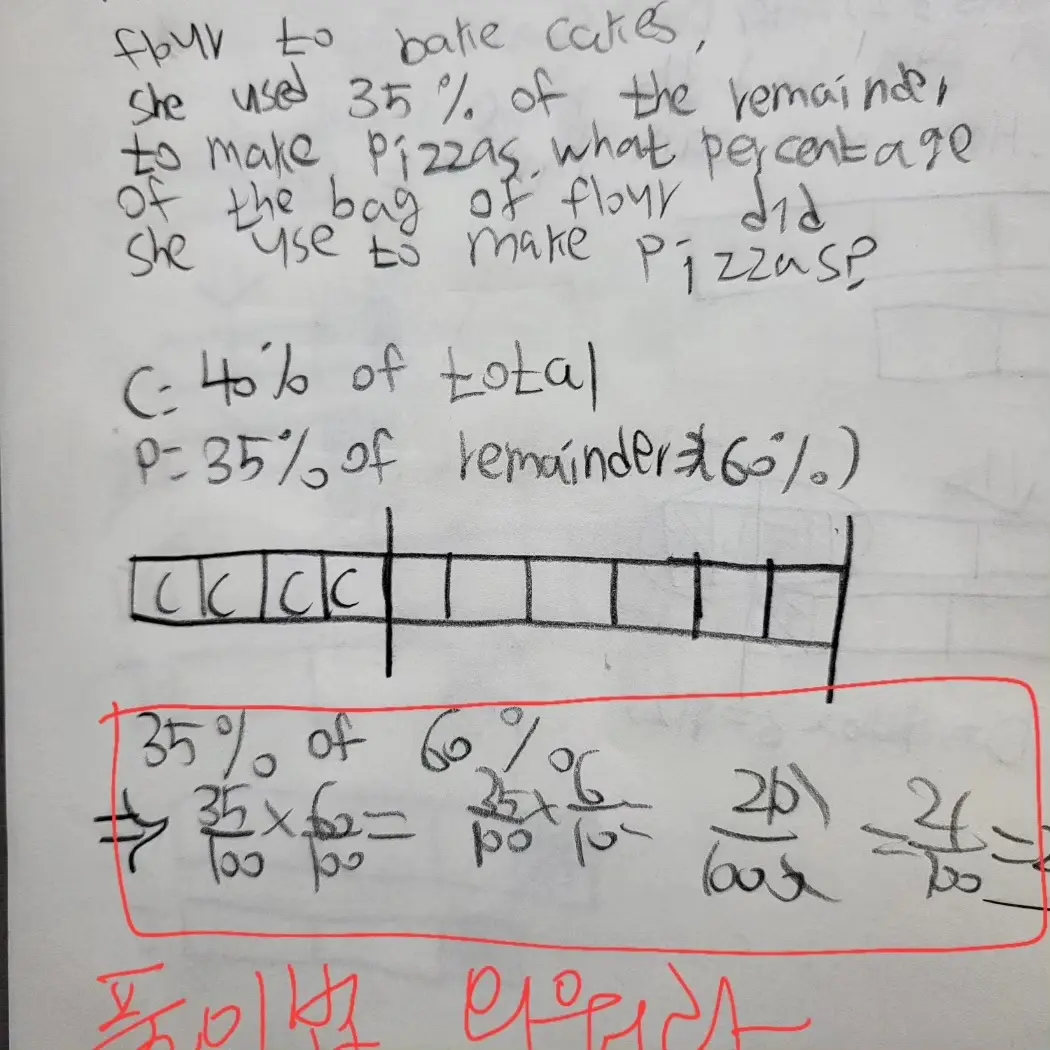 flour to bake cakes,
she used 35% of the remainder
to make pizzas. what percentage
of the bag of flour did
she use to make pizzas?
C= 40% of total
P= 35% of remainder (60%)
C C C C
35% of 60%
⇒ 35/100 × 60/100 = 35/100 × 6/10 = = 21/100 =
풀이법 외워라